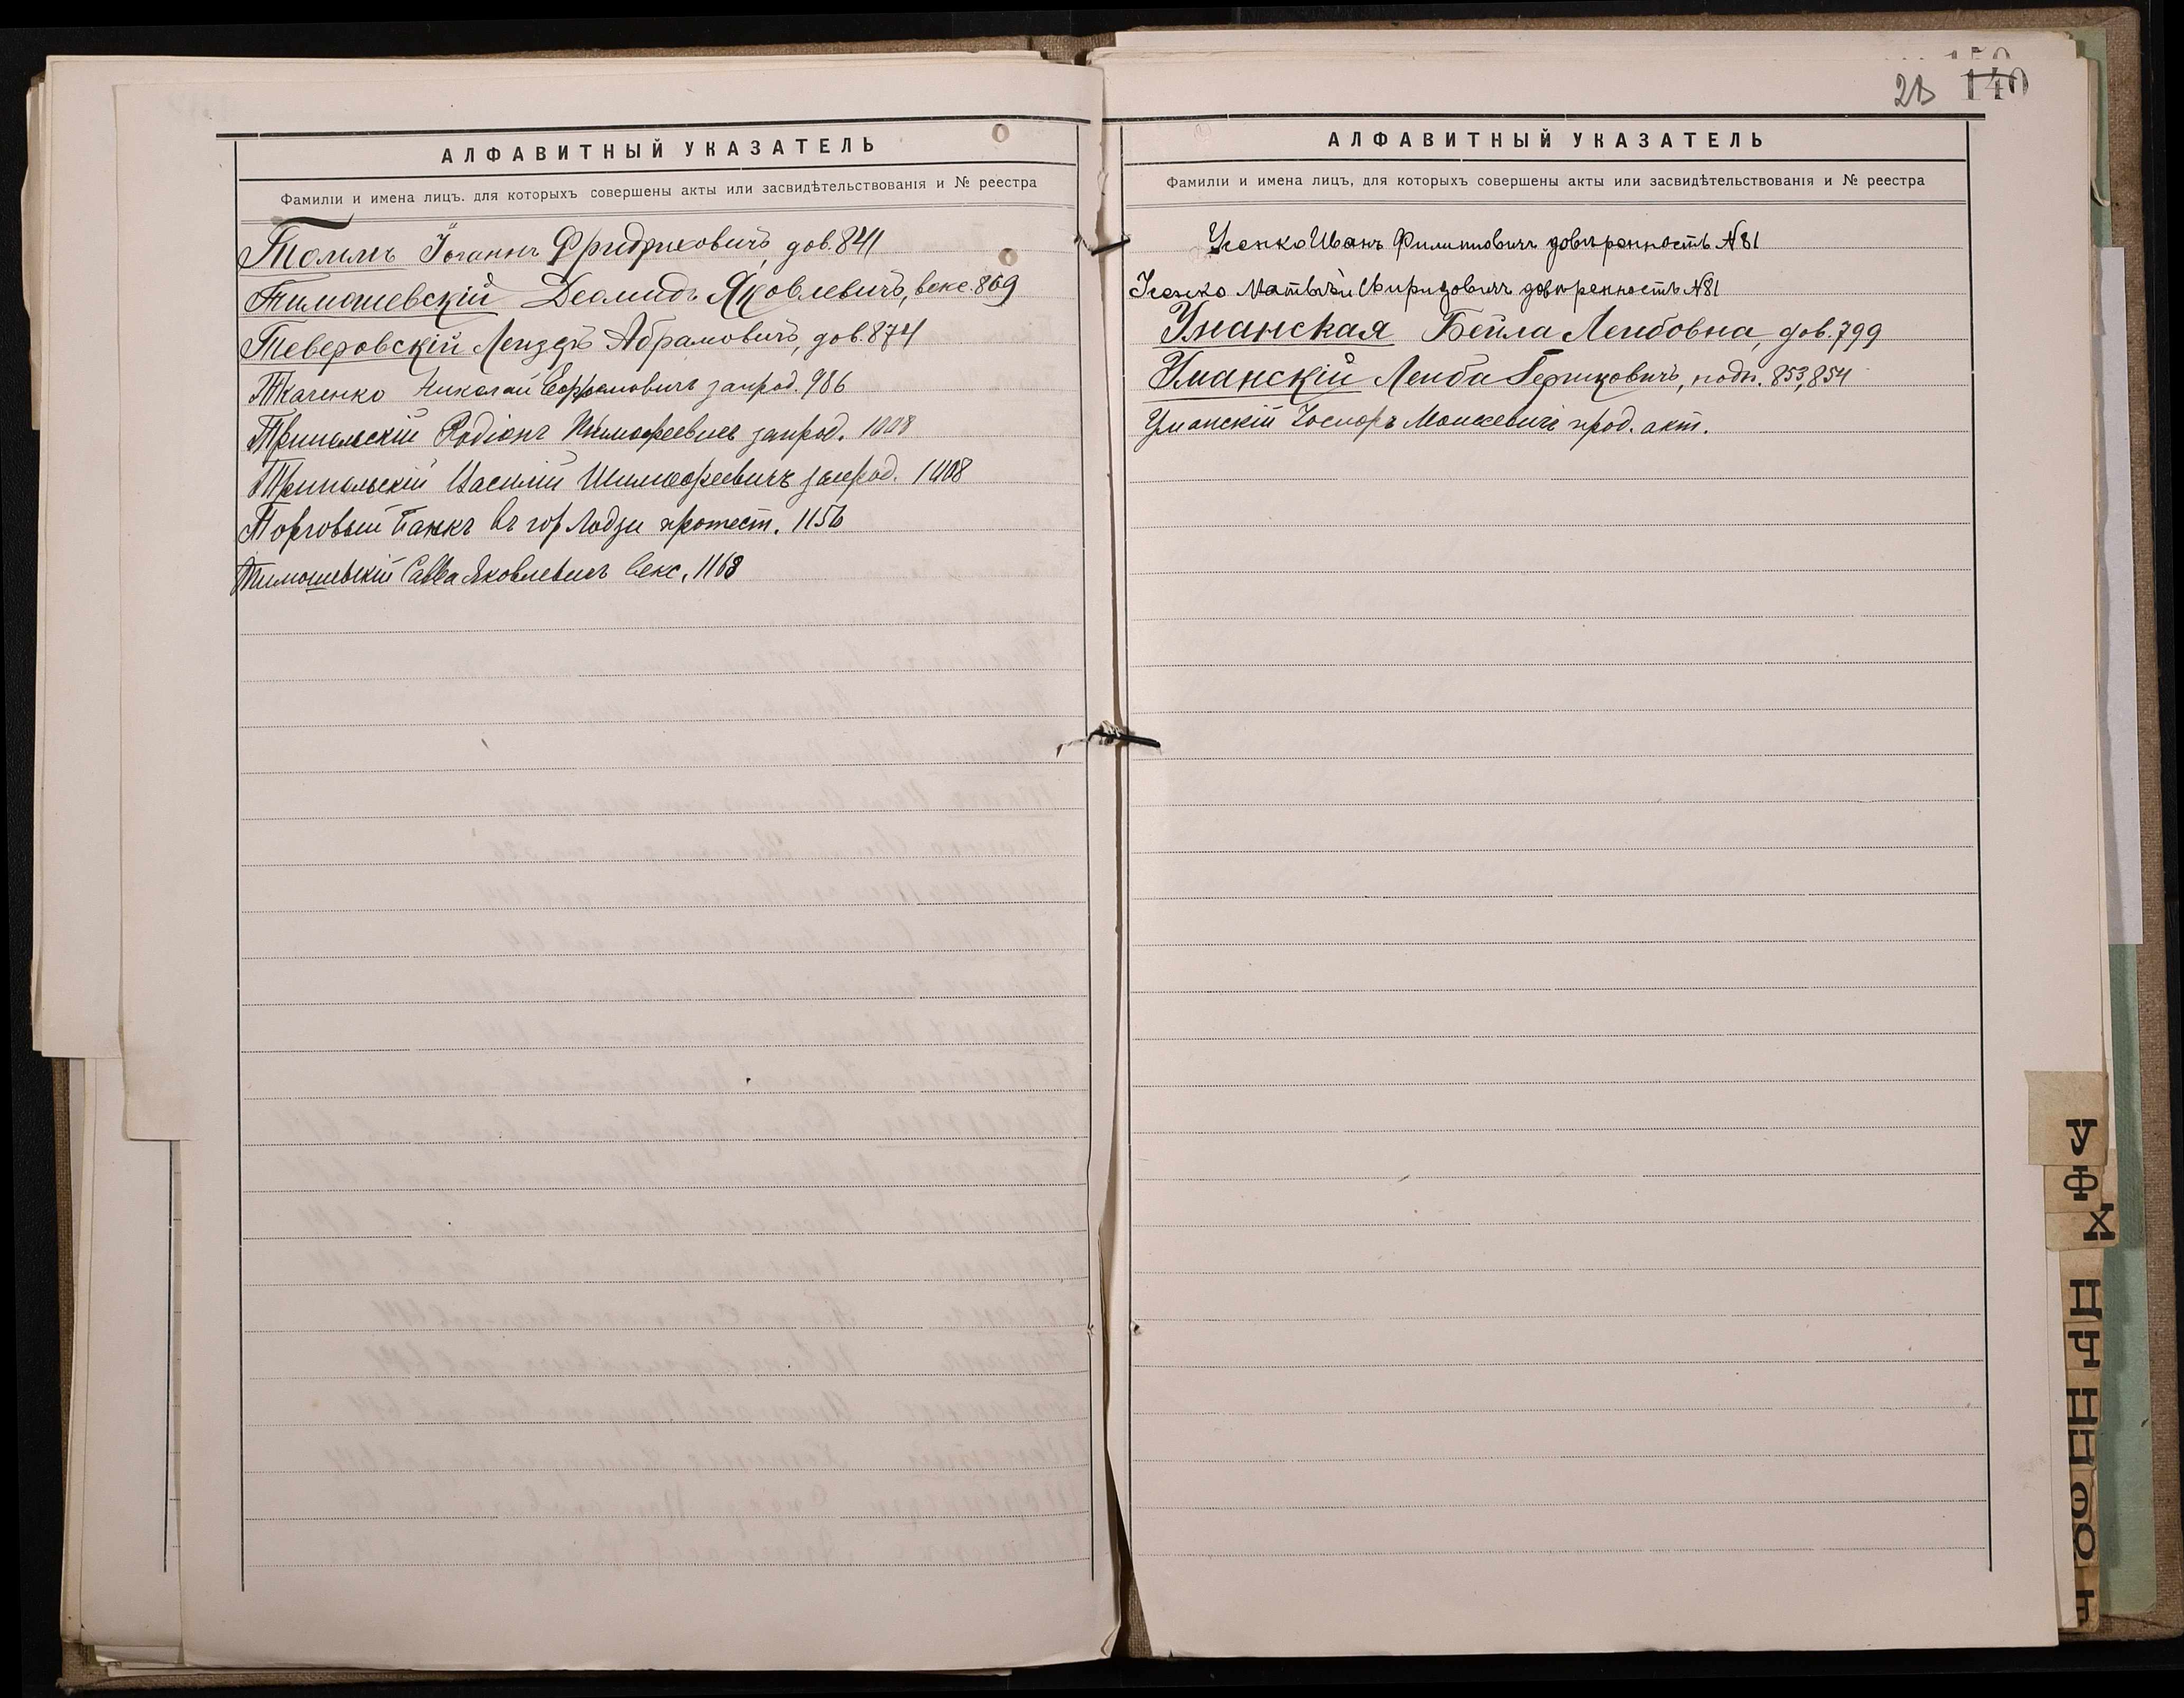 АЛФАВИТНЫЙ УКАЗАТЕЛЬ
Фамиліи и имена лицъ. для которыхъ совершены акты или засвидѣтельствованія и № реестра
Іоганнъ Фридриховичъ, дов. 841
Тимошевскій Деомидъ Яковлевичъ, векс. 869
Тверовскій Лейзеръ Абрамовичъ, дов. 874
Ткаченко Николай запрод. 986
Трипольскій Родіонъ Тимофеевичъ запрод. 1008
Трипольскій Василій Тимофеевичъ запрод. 1008
Торговый Банкъ въ гор Лодзи протест. 1156
Тимошевскій Савва Яковлевичъ векс. 1168
28 140
АЛФАВИТНЫЙ УКАЗАТЕЛЬ
Фамиліи и имена лицъ, для которыхъ совершены акты или засвидѣтельствованія и № реестра
Усенко Иванъ Филипповичъ довѣренность №81
Усенко Матвѣй Свиридовичъ довѣренность №81
Уманская Бейла Лейбовна, дов. 799
Уманскій Лейба Гершковичъ, подп. 853,854
Уманскій Іосифъ Мошкевичъ прод. акт.
У
Ф
Х
Ц
Ч